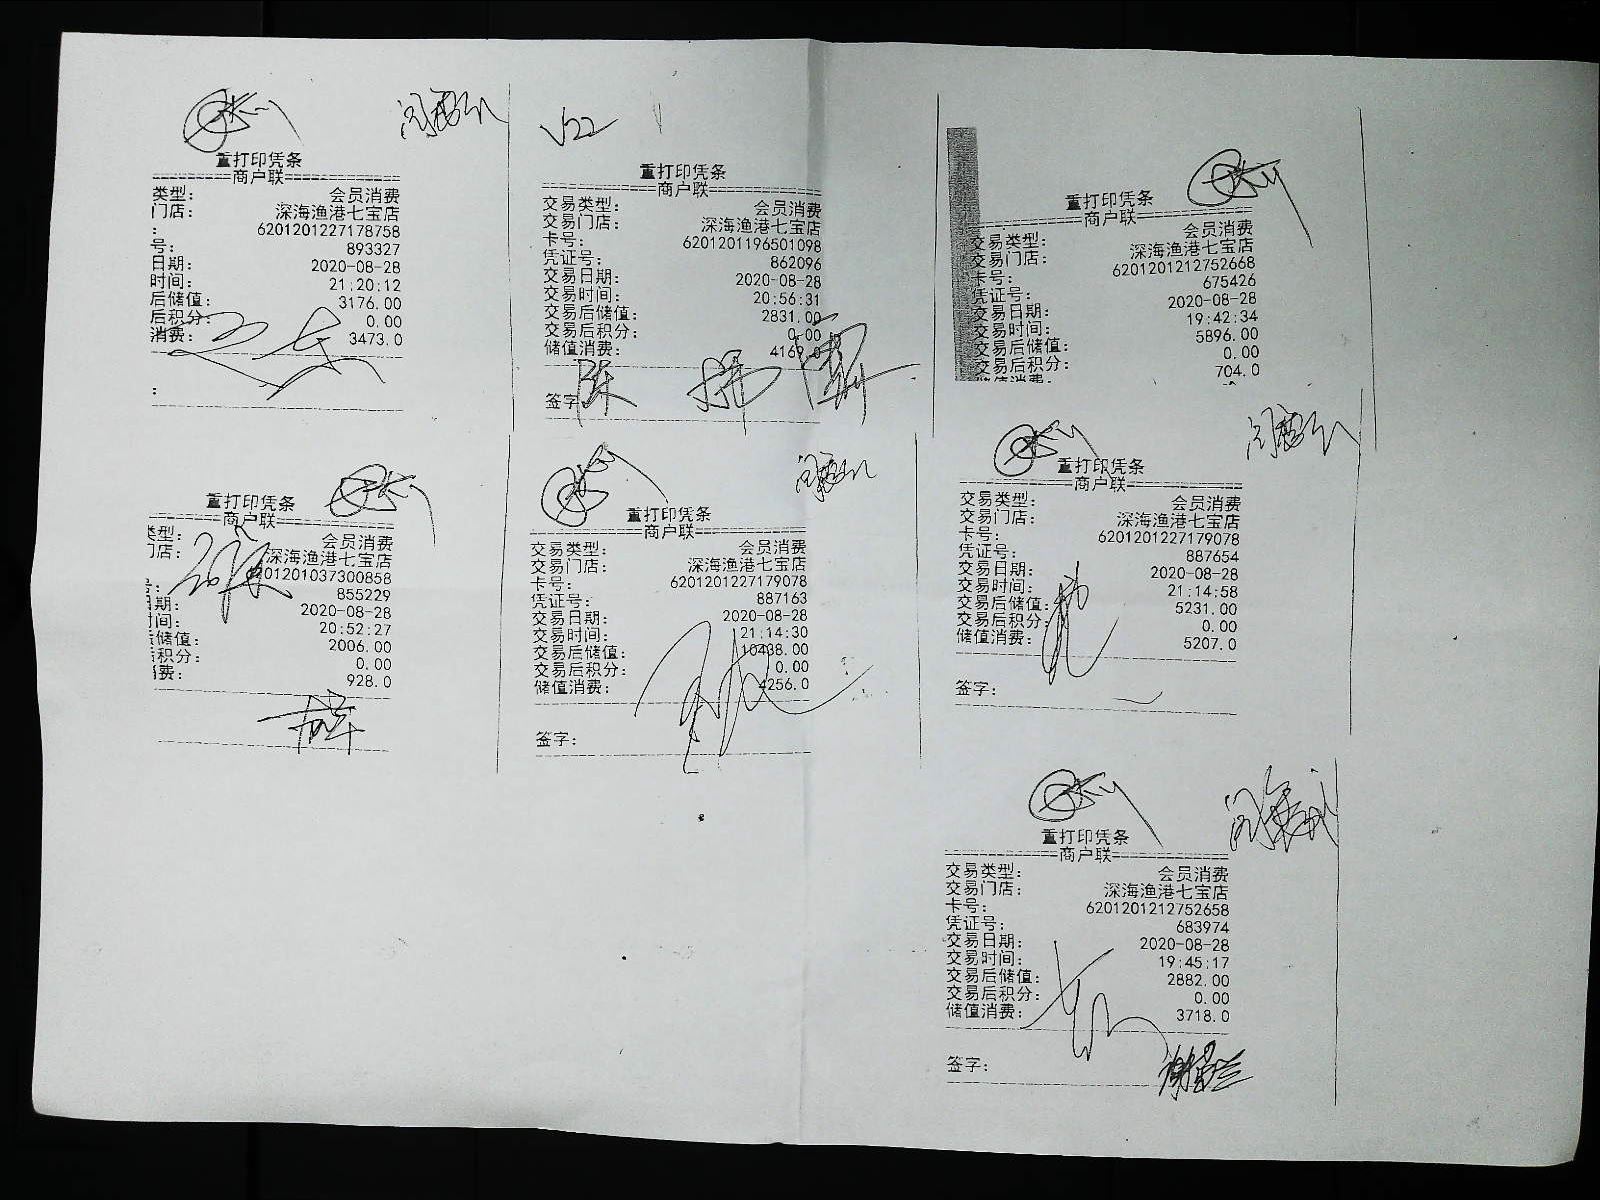 重打印凭条
商户联
类型： 会员消费
门店： 深海渔港七宝店
： 6201201227178758
号： 893327
日期： 2020-08-28
时间： 21:20:12
后储值： 3176.00
后积分： 0.00
消费： 3473.0
：
V22
重打印凭条
商户联
交易类型： 会员消费
交易门店： 深海渔港七宝店
卡号： 6201201196501098
凭证号： 862096
交易日期： 2020-08-28
交易时间： 20:56:31
交易后储值： 2831.00
交易后积分： 0.00
储值消费： 4169.0
签字
重打印凭条
商户联
交易类型： 会员消费
交易门店： 深海渔港七宝店
卡号： 6201201212752668
凭证号： 675426
交易日期： 2020-08-28
交易时间： 19:42:34
交易后储值： 5896.00
交易后积分： 0.00
储值消费： 704.0
重打印凭条
商户联
类型： 会员消费
门店： 深海渔港七宝店
201201037300858
号： 855229
日期： 2020-08-28
时间： 20:52:27
后储值： 2006.00
后积分： 0.00
消费： 928.0
重打印凭条
商户联
交易类型： 会员消费
交易门店： 深海渔港七宝店
卡号： 6201201227179078
凭证号： 887163
交易日期： 2020-08-28
交易时间： 21:14:30
交易后储值： 10438.00
交易后积分： 0.00
储值消费： 4256.0
签字：
重打印凭条
商户联
交易类型： 会员消费
交易门店： 深海渔港七宝店
卡号： 6201201227179078
凭证号： 887654
交易日期： 2020-08-28
交易时间： 21:14:58
交易后储值： 5231.00
交易后积分： 0.00
储值消费： 5207.0
签字：
重打印凭条
商户联
交易类型： 会员消费
交易门店： 深海渔港七宝店
卡号： 6201201212752658
凭证号： 683974
交易日期： 2020-08-28
交易时间： 19:45:17
交易后储值： 2882.00
交易后积分： 0.00
储值消费： 3718.0
签字：